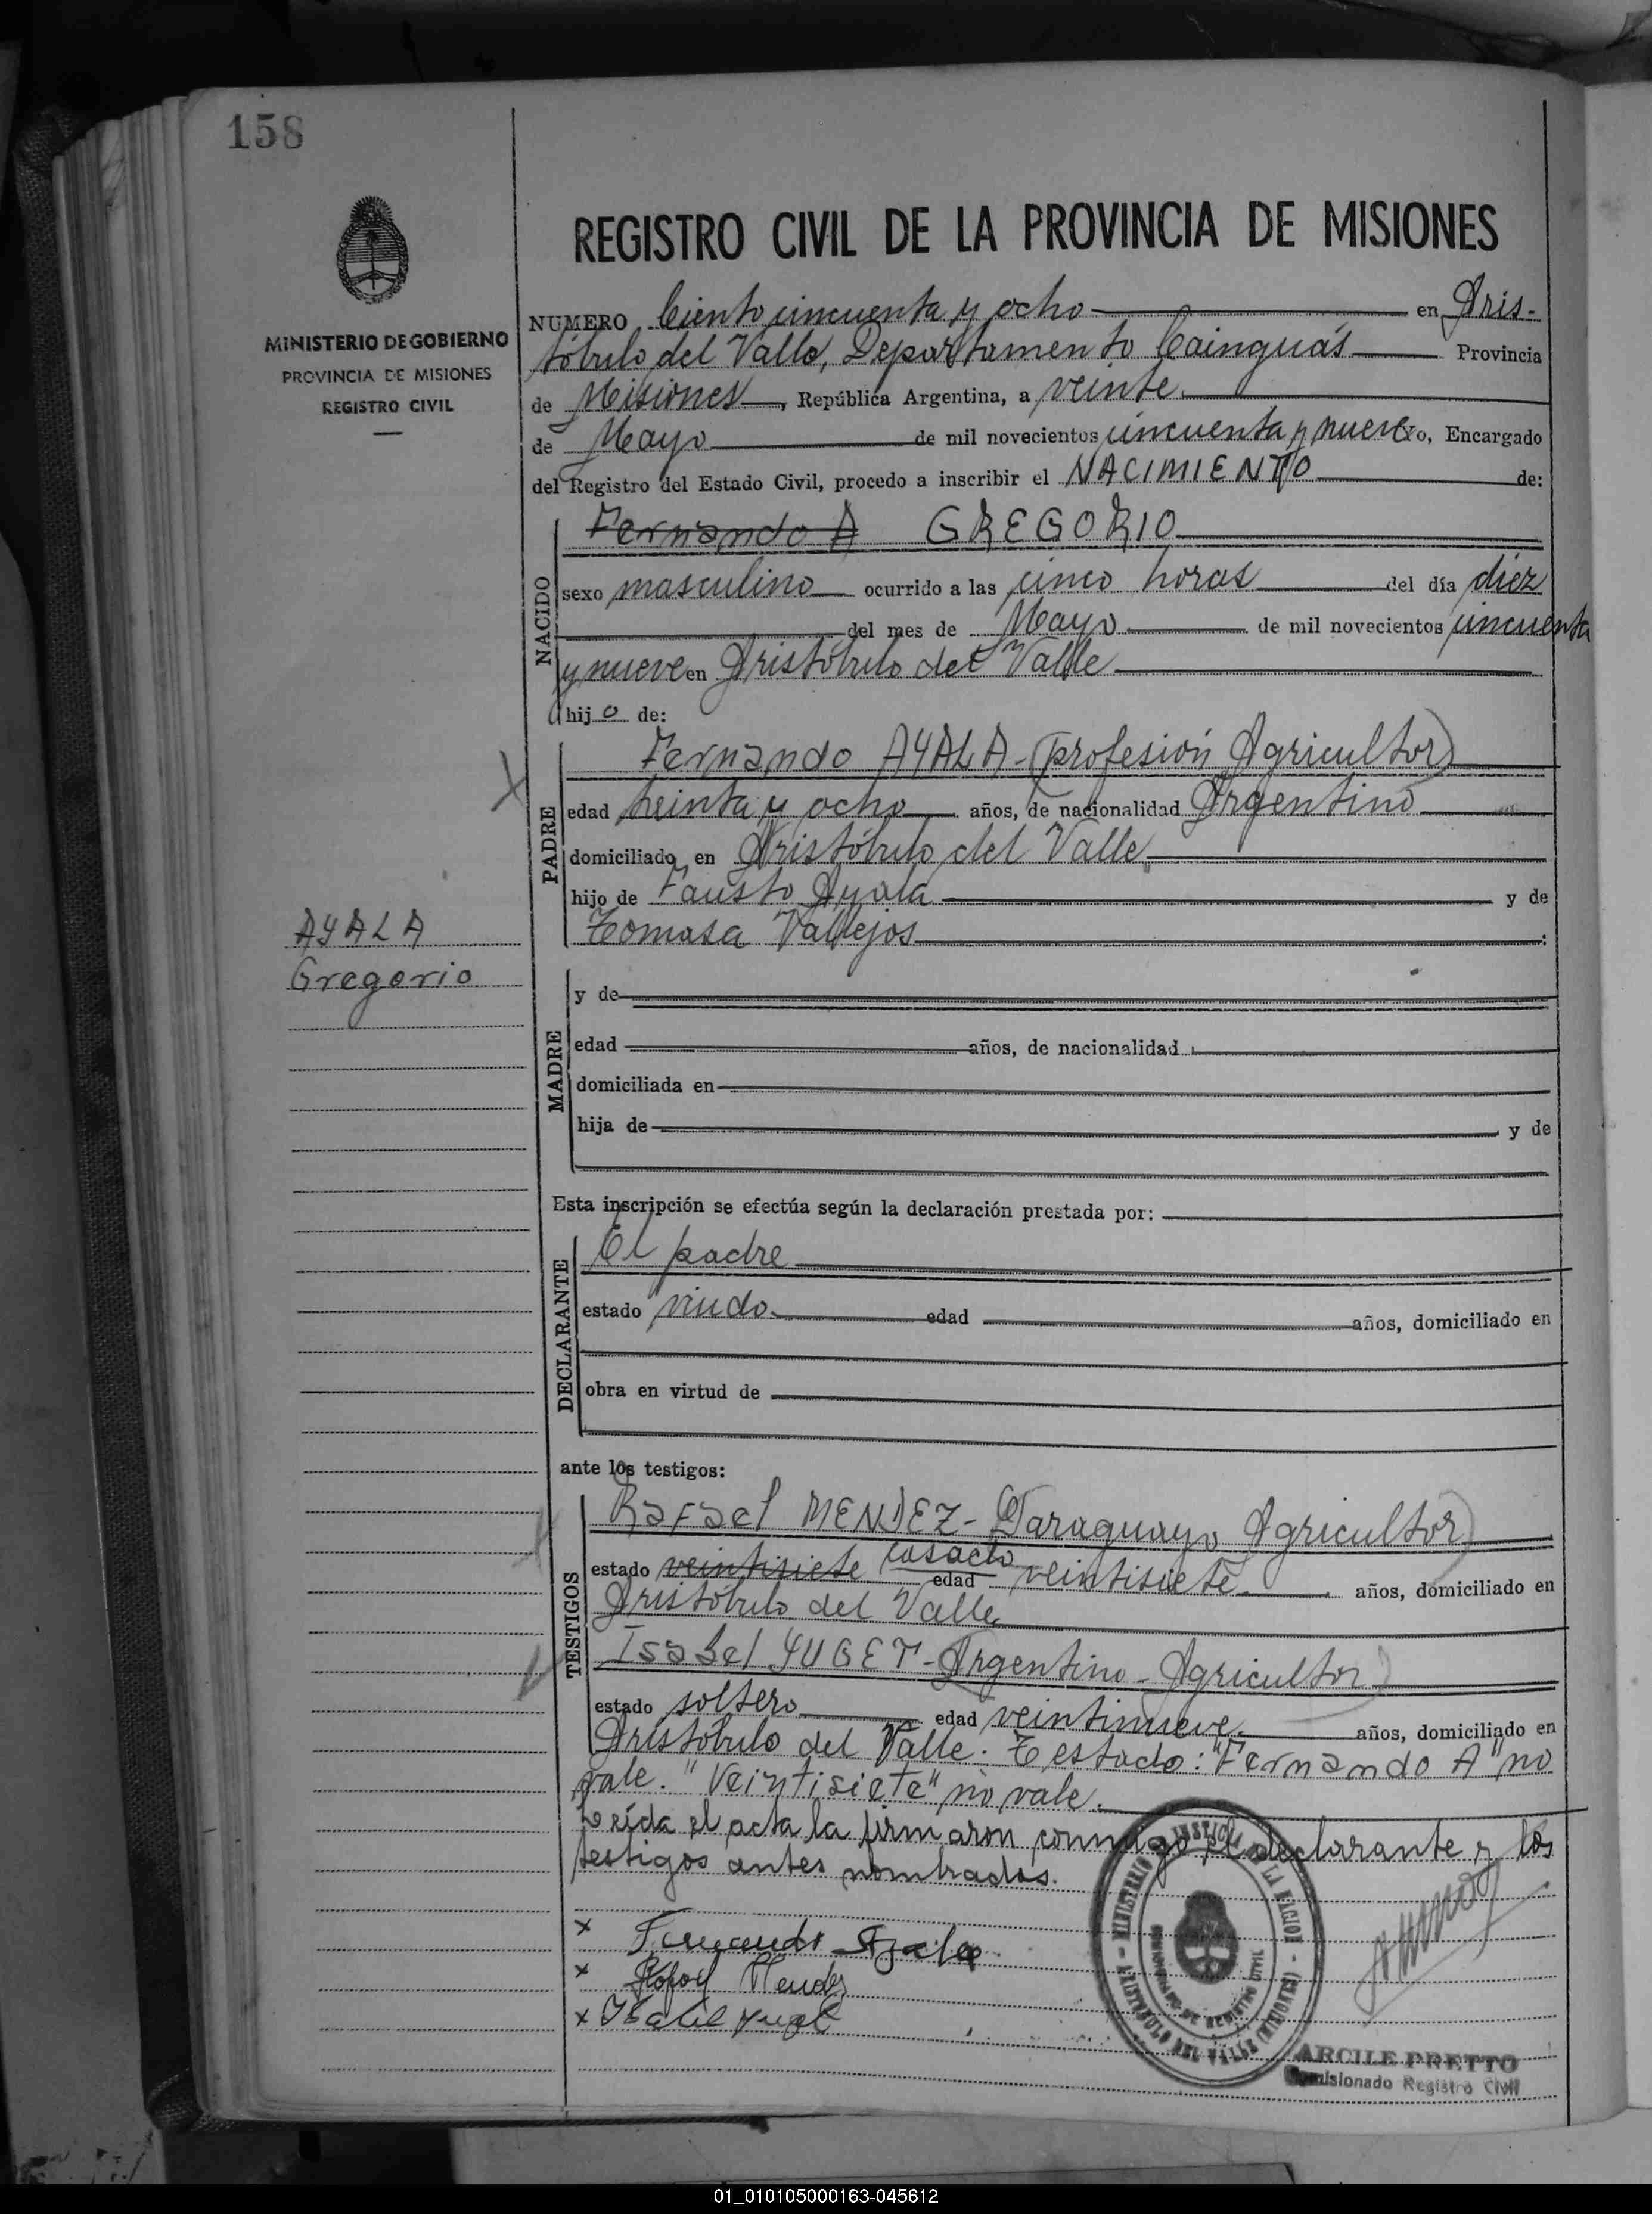 158
MINISTERIO DE GOBIERNO
PROVINCIA DE MISIONES
REGISTRO CIVIL
REGISTRO CIVIL DE LA PROVINCIA DE MISIONES
NUMERO Ciento cincuenta y ocho en Aris-
tóbulo del Valle, Departamento Cainguás Provincia
de Misiones, República Argentina, a veinte
de Mayo de mil novecientos cincuenta y nueve Yo, Encargado
del Registro del Estado Civil, procedo a inscribir el NACIMIENTO de:
NACIDO
Fernando A GREGORIO
sexo masculino ocurrido a las cinco horas del día diez
del mes de Mayo de mil novecientos cincuenta
y nueve en Aristóbulo del Valle
hijo de:
PADRE
Fernando AYALA-(profesión Agricultor)
edad treinta y ocho años, de nacionalidad Argentino
domiciliado en Aristóbulo del Valle
hijo de Fausto Ayala y de
Tomasa Vallejos
AYALA
Gregorio
MADRE
y de
edad años, de nacionalidad
domiciliada en
hija de y de
Esta inscripción se efectúa según la declaración prestada por:
DECLARANTE
El padre
estado viudo edad años, domiciliado en
obra en virtud de
ante los testigos:
TESTIGOS
Rafael MENDEZ-(Paraguayo Agricultor)
estado veintisiete casado edad veintisiete años, domiciliado en
Aristóbulo del Valle
Isabel YUGET-Argentino-Agricultor)
estado soltero edad veintinueve años, domiciliado en
Aristóbulo del Valle. Testado: "Fernando A" no
vale. "Veintisiete" no vale.
Leída el acta la firmaron conmigo el declarante y los
testigos antes nombrados.
x Fernando Ayala
x Rafael Mendez
x Isabel Yuget
MINISTERIO DE JUSTICIA DE LA NACION - ARISTOBULO DEL VALLE (MISIONES) -
ARCILE PRETTO
Comisionado Registro Civil
01_010105000163-045612